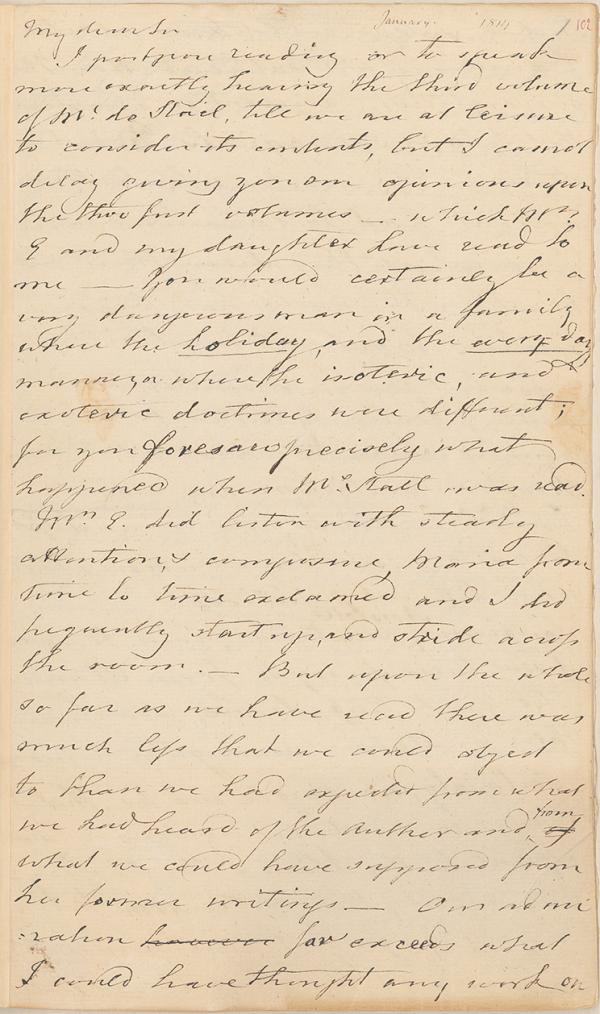 January. 1814 102
My dear Sir
I postpone reading or to speak
more exactly hearing the third volume
of Mr. de Stael, till we are at leisure
to consider its contents, but I cannot
delay giving you our opinions upon
the two first volumes — which Mrs.
E and my daughter have read to
me — You would certainly be a
very dangerous man in a family
where the holiday, and the every day
manners, or where the isoteric, and
exoteric doctrines were different;
for you foresaw precisely what
happened when Me Stall was read.
Mrs E. did listen with steady
attention, & composure, Maria from
time to time exclaimed and I did
frequently start up, and stride across
the room. — But upon the whole
so far as we have read there was
much less that we could object
to than we had expected from what
we had heard of the Author and from of
what we could have supposed from
her former writings — Our admi
:ration however far exceeds what
I could have thought any work on